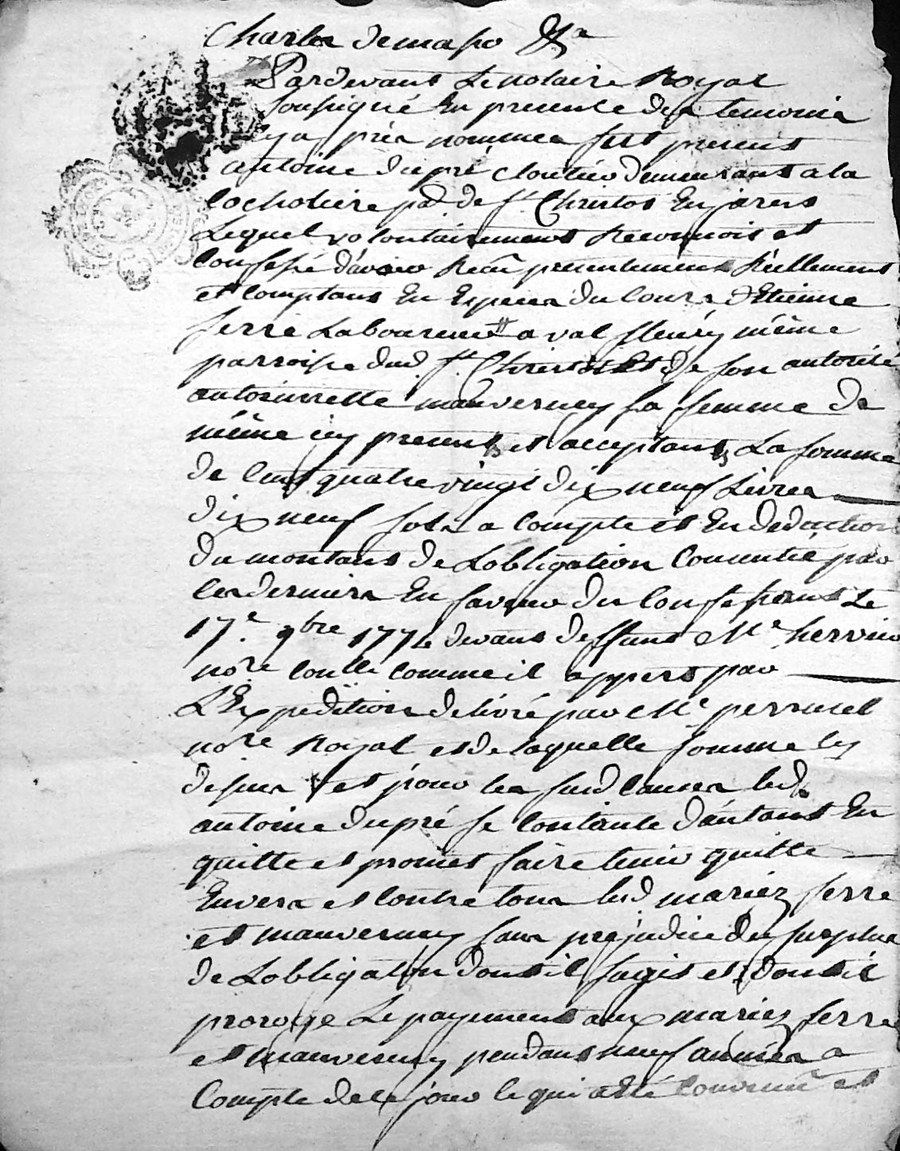 Charles demaso
Pardevant Le notaire Royal
soussigné En presence des temoins
cy a près nommes fut present
antoine dupré cloutier demeurant a la
cochotiere p.sse de s.t Christot En jarets
Lequel volontairement Reconnois et
Confessé d'avoir Reçu presentement Reellement
et comptant En Especes du Cours d'Etienne
ferré Laboureur a val fleury même
parroisse dud. s.t Christot et de son autorité
antoinnette mauvernay sa femme de
même icy presents et acceptants La somme
de Cent quatre vingt dix neuf Livres
dix neuf sols a compte et En deduction
du montant de L'obligation Consentie par
les derniers En faveur du Confessant Le
17.e 9bre 1771 devant deffunt M.e hervier
no.re comme il appert par
L'Expedition delivré par M.e perruset
no.re Royal et de laquelle somme
desus et pour les susd causes led.
antoine dupré se Contante d'autant En
quitte et promet faire tenir quitte
Envers et contre tous lesd mariez ferre
et mauvernay sans prejudice du surplus
de L'obligation dont il s'agit et dont il
proroge Le payement aux mariez ferre
et mauvernay pendant neuf années a
Compte de ce jour ce qui a été Convenu et